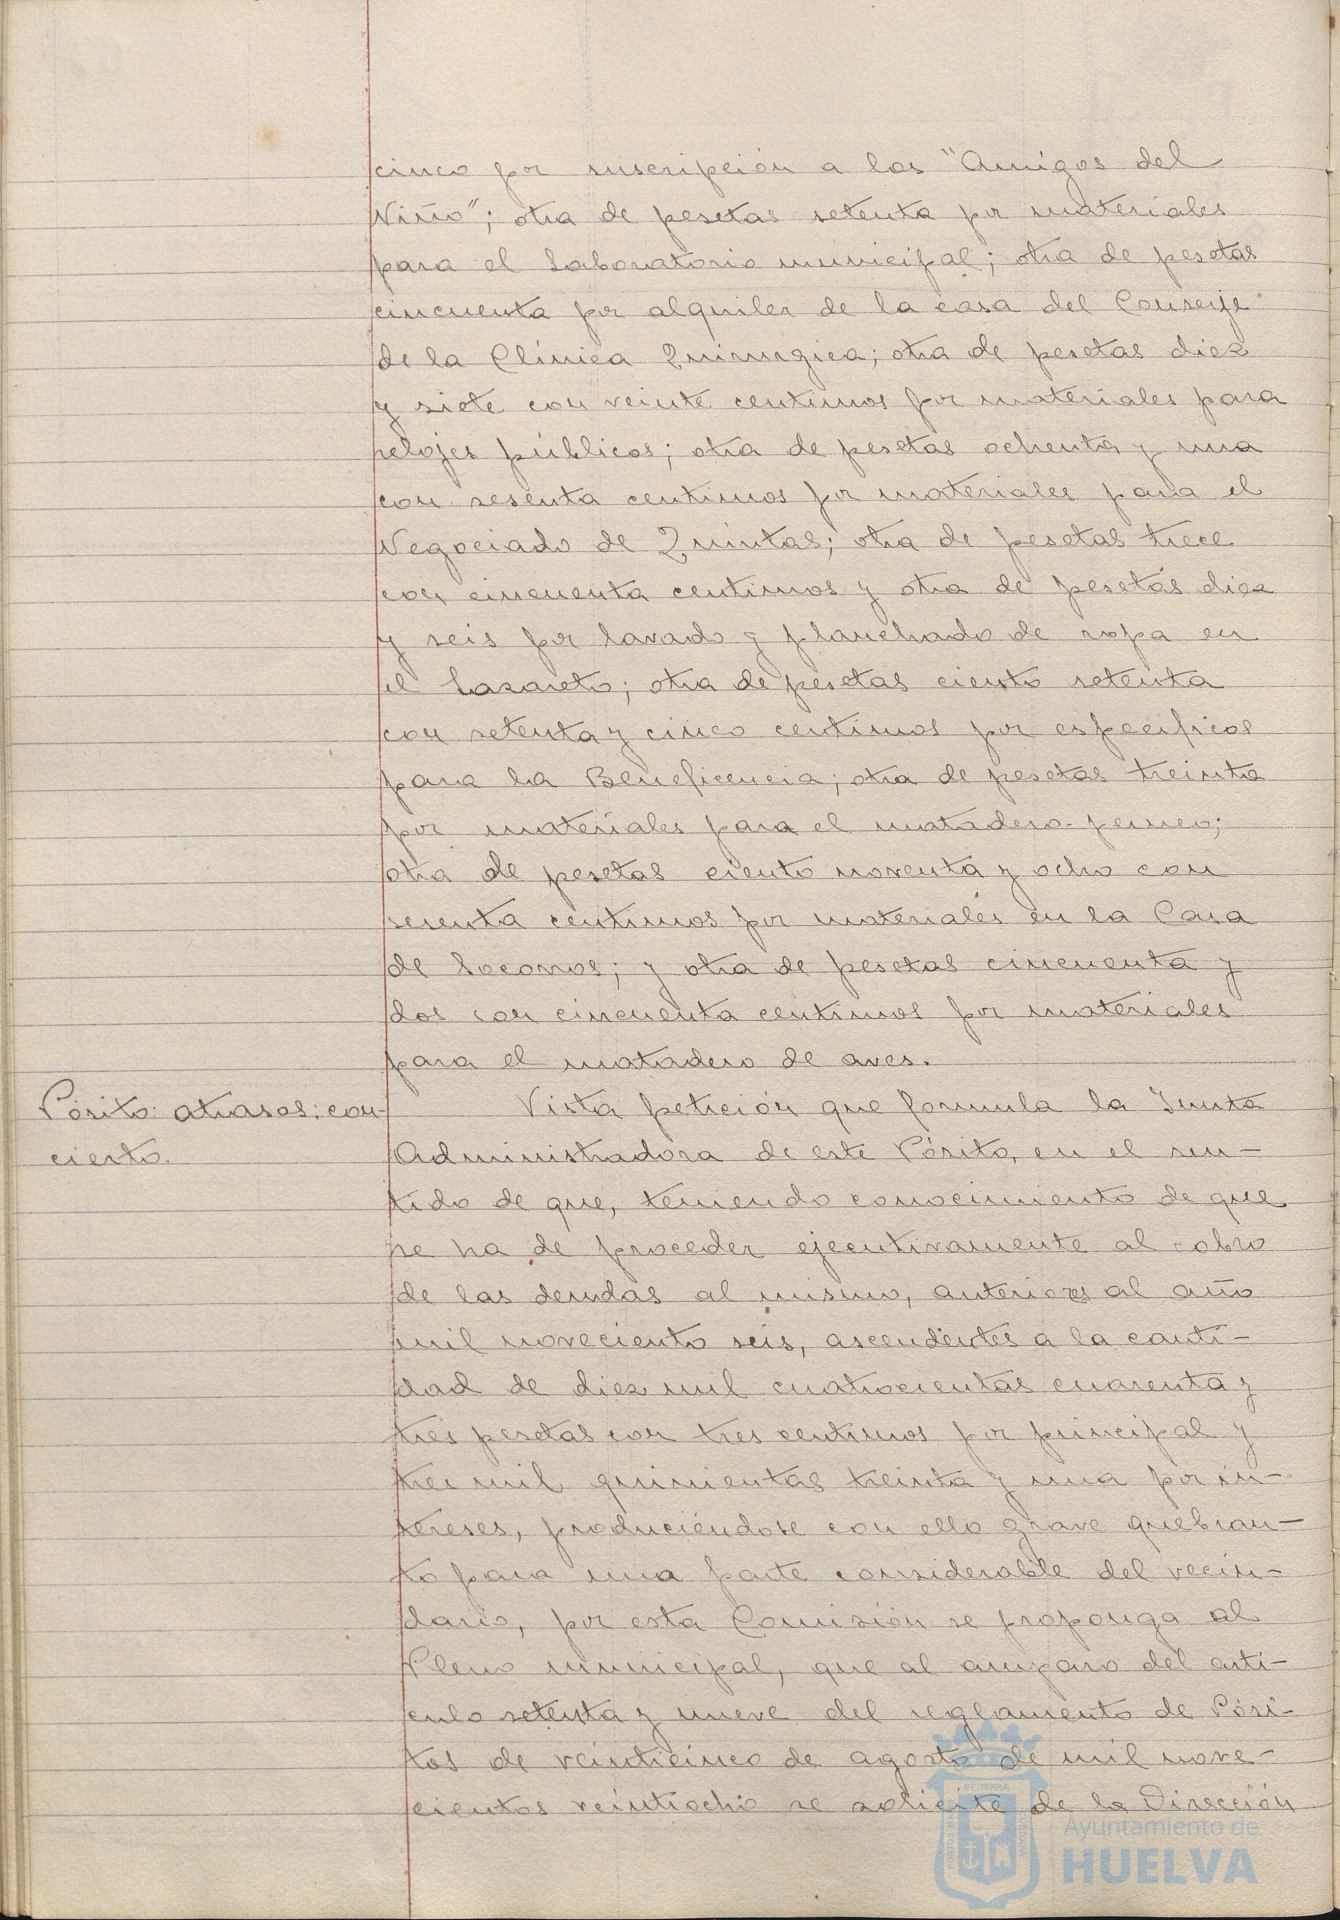 cinco por suscripción a los "Amigos del
Niño"; otra de pesetas setenta por materiales
para el Laboratorio municipal; otra de pesetas
cincuenta por alquiler de la casa del Conserje
de la Clínica Quirurgica; otra de pesetas diez
y siete con veinte centimos por materiales para
relojes públicos; otra de pesetas ochenta y una
con sesenta centimos por materiales para el
Negociado de Quintas; otra de pesetas trece
con cincuenta centimos y otra de pesetas diez
y seis por lavado y planchado de ropa en
el Lazareto; otra de pesetas ciento setenta
con setenta y cinco centimos por especificos
para la Beneficencia; otra de pesetas treinta
por materiales para el matadero
otra de pesetas ciento noventa y ocho con
sesenta centimos por materiales en la Casa
de Socorros; y otra de pesetas cincuenta y
dos con cincuenta centimos por materiales
para el matadero de aves.
Pósito: atrasos: con-
cierto.
Vista petición que formula la Junta
Administradora de este Pósito, en el sen-
tido de que, teniendo conocimiento de que
se ha de proceder ejecutivamente al cobro
de las deudas al mismo, anteriores al año
mil noveciento seis, ascendentes a la canti-
dad de diez mil cuatrocientas cuarenta y
tres pesetas con tres centimos por principal y
tres mil quinientas treinta y una por in-
tereses, produciéndose con ello grave quebran-
to para una parte considerable del vecin-
dario, por esta Comisión se proponga al
Pleno municipal, que al amparo del arti-
culo setenta y nueve del reglamento de Pósi-
tos de veinticinco de agosto de mil nove-
cientos veintiocho se solicite de la Dirección
ET TERRA
Ayuntamiento de
HUELVA